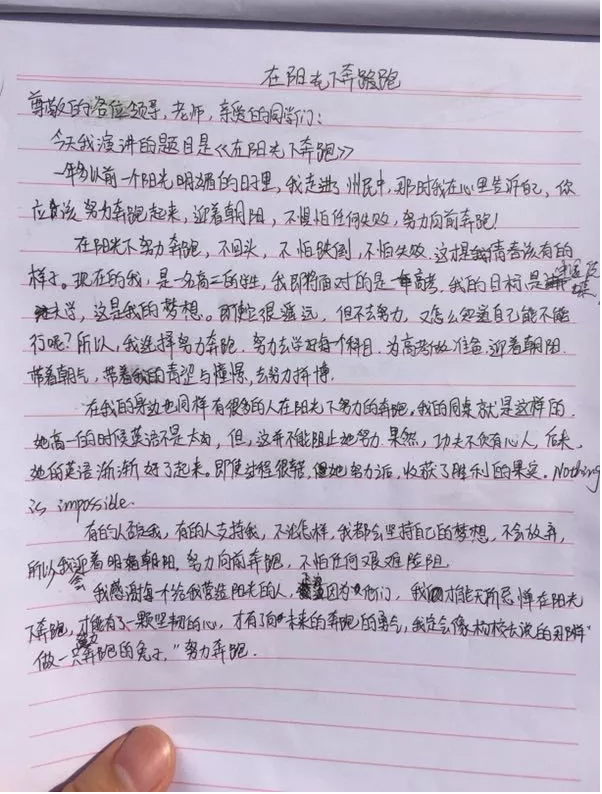 在阳光下奔跑
尊敬的各位领导，老师，亲爱的同学们：
今天我演讲的题目是《在阳光下奔跑》
一年多以前一个阳光明媚的日子里，我走进了州民中，那时我在心里告诉自己，你
应该努力奔跑起来，迎着朝阳，不惧怕任何失败，努力向前奔跑！
在阳光下努力奔跑，不回头，不怕跌倒，不怕失败，这才是青春该有的
样子。现在的我，是一名高二的学生，我即将面对的是高考，我的目标是
大学，这是我的梦想。即使它很遥远，但不去努力，又怎么知道自己能不能
行呢？所以，我选择努力奔跑，努力去学习每个科目，为高考做准备，迎着朝阳，
带着朝气，带着我的希望与憧憬，去努力拼搏。
在我的身边也同样有很多的人在阳光下努力的奔跑。我的同桌就是这样的，
她高一的时候英语不是太好，但，这并不能阻止她努力，果然，功夫不负有心人，后来，
她的英语渐渐好了起来。即使过程很难，但她努力后，收获了胜利的果实。Nothing
is impossible.
有的人，有的人支持我，不论怎样，我都会坚持自己的梦想，不会放弃，
所以我会迎着朝阳，努力向前奔跑，不怕任何艰难险阻。
我感谢每个给我营造阳光的人，正因为他们，我才能无所忌惮在阳光
下奔跑，才能有了一颗坚韧的心，才有了向未来的奔跑的勇气，我定会像校长说的那样“
做一只努力奔跑的兔子，”努力奔跑。